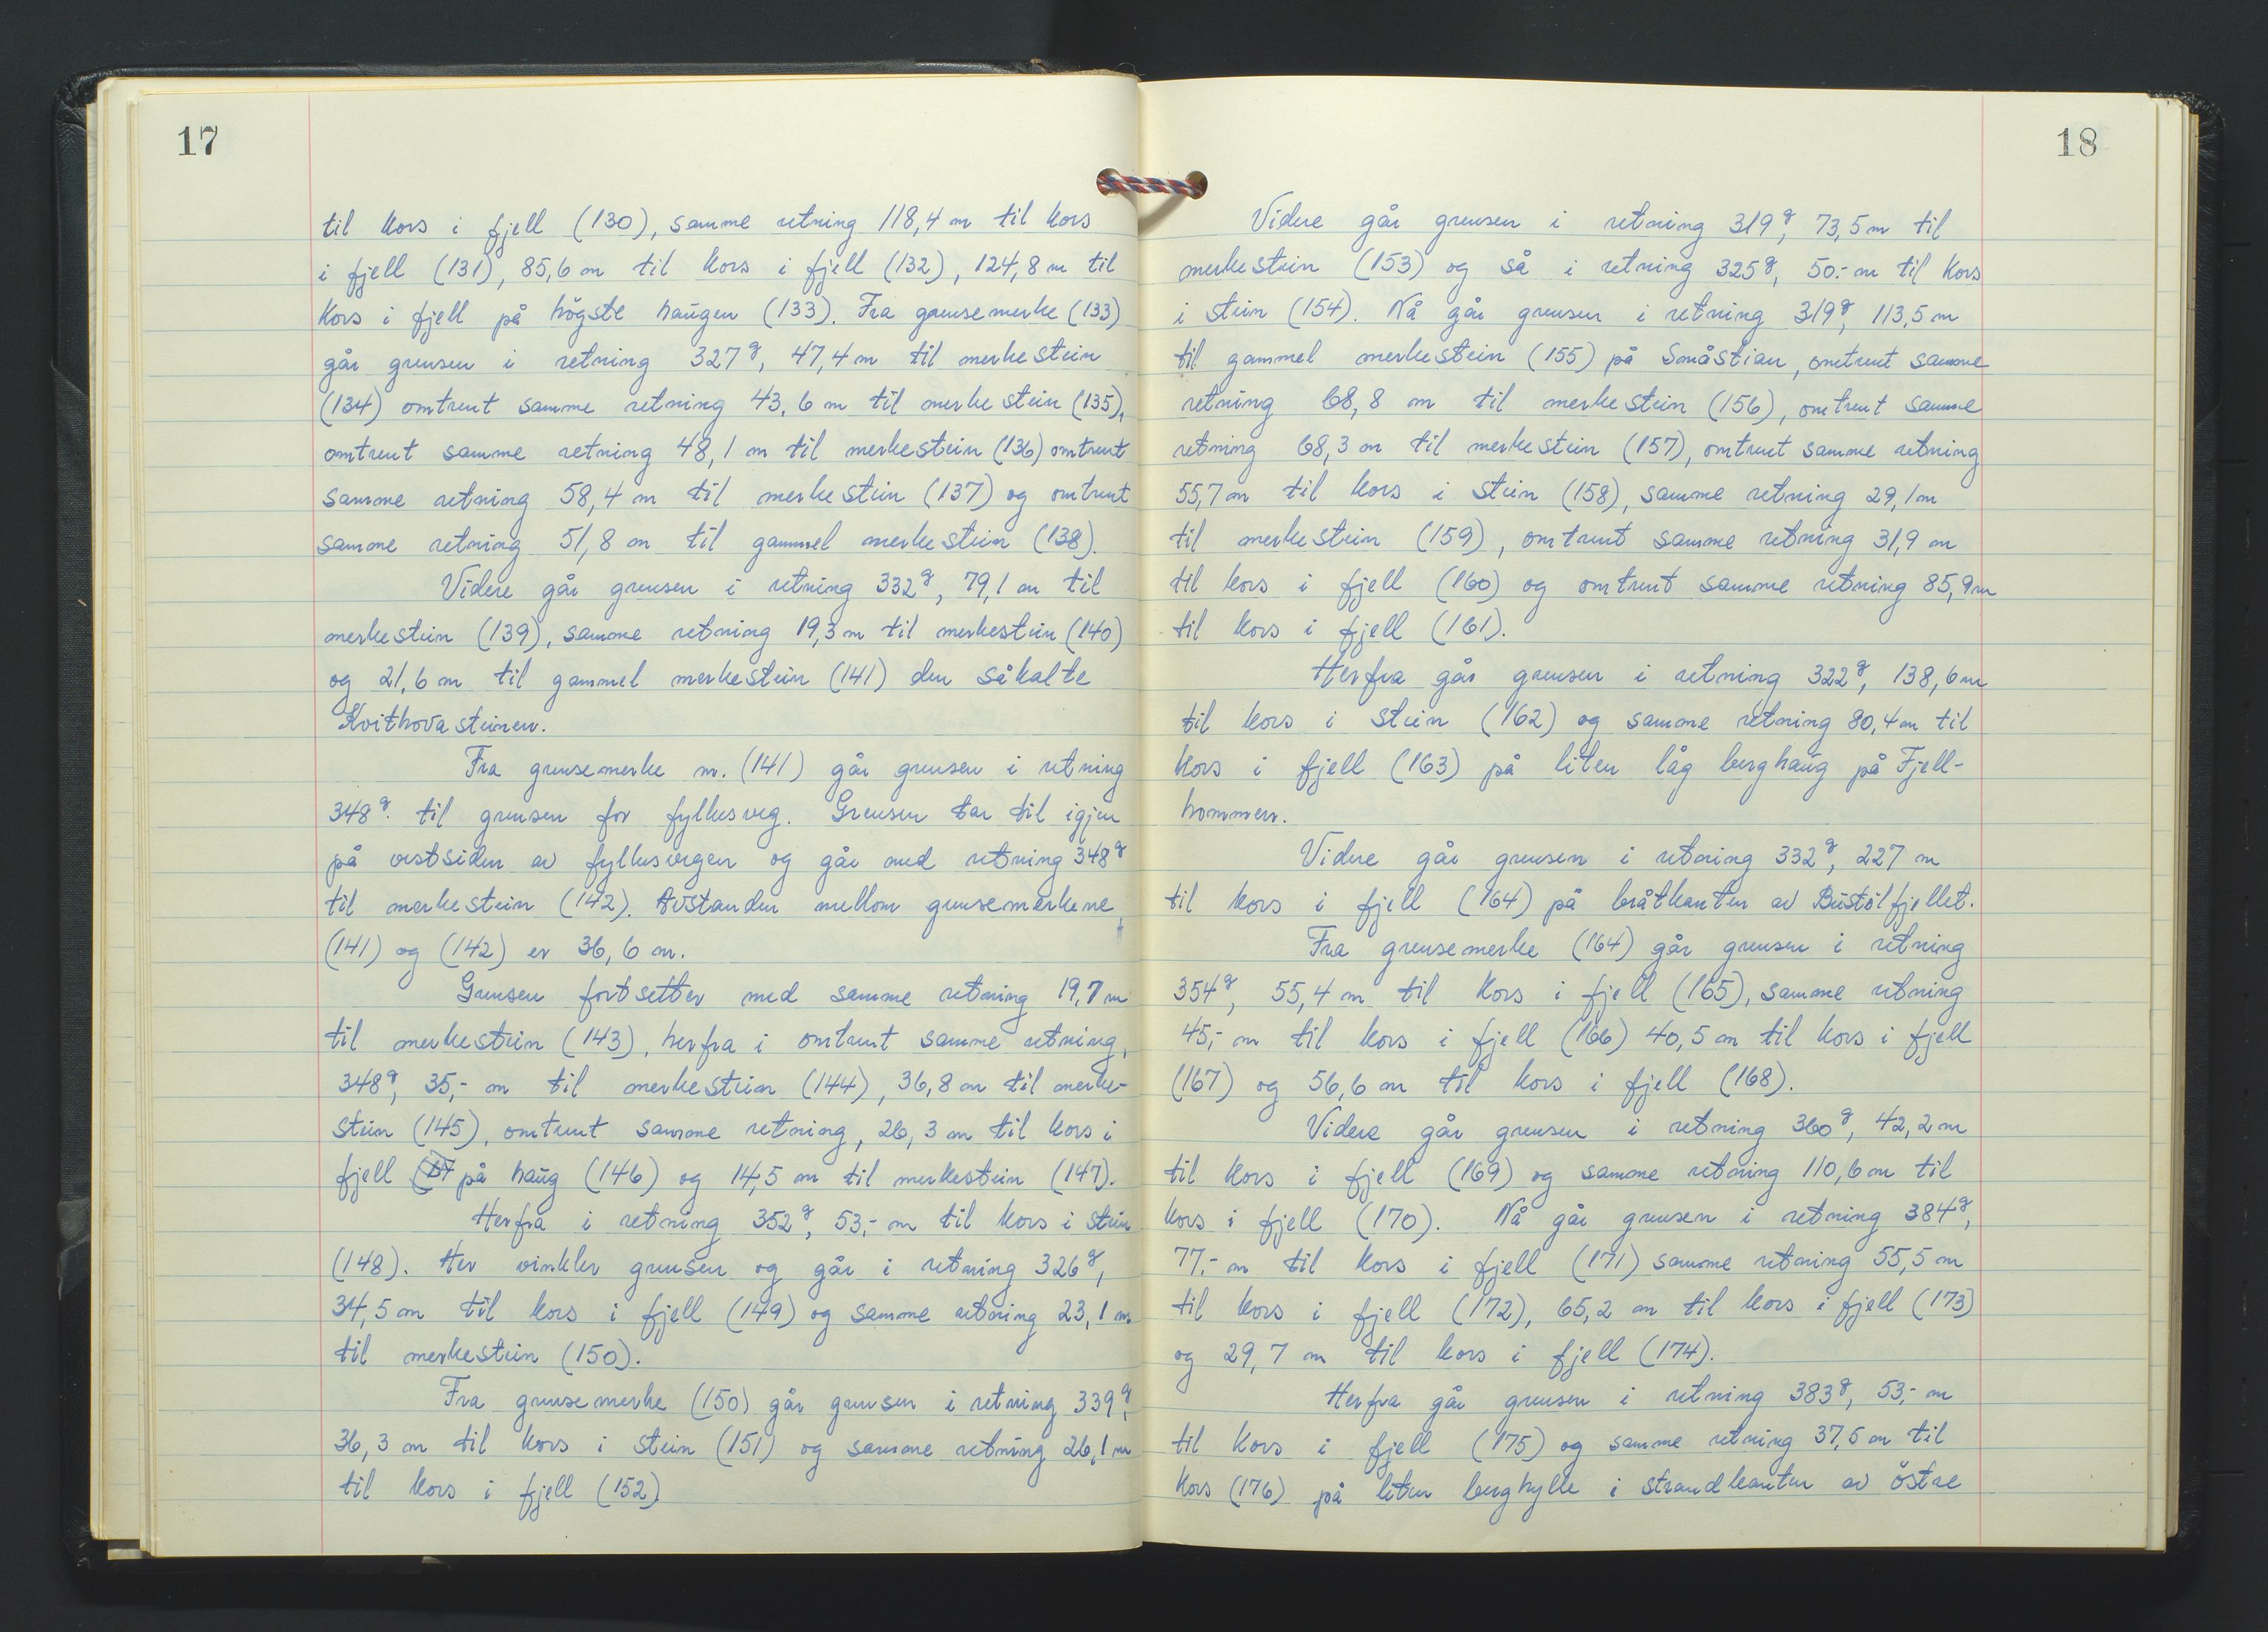 17
til kors i fjell (130), samme retning 118,4 m til kors
i fjell (131), 85,6 m til kors i fjell (132), 124,8 m til
kors i fjell på högste haugen (133). Fra grensemerke (133)
går grensen i retning 327g, 47,4 m til merkestein
(134) omtrent samme retning 43,6 m til merkestein (135),
omtrent samme retning 48,1 m til merkestein (136) omtrent
samme retning 58,4 m til merkestein (137) og omtrent
samme retning 51,8 m til gammel merkestein (138).
Videre går grensen i retning 332g, 79,1 m til
merkestein (139), samme retning 19,3 m til merkestein (140)
og 21,6 m til gammel merkestein (141) den såkalte
Kvithovasteinen.
Fra grensemerke nr. (141) går grensen i retning
348g. til grensen for fylkesveg. Grensen tar til igjen
på vestsiden av fylkesvegen og går med retning 348g
til merkestein (142). Avstanden mellom grensemerkene
(141) og (142) er 36,6 m.
Grensen fortsetter med samme retning 19,7 m
til merkestein (143), herfra i omtrent samme retning,
348g, 35,- m til merkestein (144), 36,8 m til merke-
stein (145), omtrent samme retning, 26,3 m til kors i
fjell (14 på haug (146) og 14,5 m til merkestein (147).
Herfra i retning 352g, 53,- m til kors i stein
(148). Her vinkler grensen og går i retning 326g,
34,5 m til kors i fjell (149) og samme retning 23,1 m
til merkestein (150).
Fra grensemerke (150) går grensen i retning 339g,
36,3 m til kors i stein (151) og samme retning 26,1 m
til kors i fjell (152)
18
Videre går grensen i retning 319g, 73,5 m til
merkestein (153) og så i retning 325g, 50.- m til kors
i stein (154). Nå går grensen i retning 319g, 113,5 m
til gammel merkestein (155) på Småstian, omtrent samme
retning 68,8 m til merkestein (156), omtrent samme
retning 68,3 m til merkestein (157), omtrent samme retning
55,7 m til kors i stein (158), samme retning 29,1 m
til merkestein (159), omtrent samme retning 31,9 m
til kors i fjell (160) og omtrent samme retning 85,9 m
til kors i fjell (161).
Herfra går grensen i retning 322g, 138,6 m
til kors i stein (162) og samme retning 80,4 m til
kors i fjell (163) på liten låg berghaug på Fjell-
hommen.
Videre går grensen i retning 332g, 227 m
til kors i fjell (164) på bråtkanten av Bustölfjellet.
Fra grensemerke (164) går grensen i retning
354g, 55,4 m til kors i fjell (165), samme retning
45,- m til kors i fjell (166) 40,5 m til kors i fjell
(167) og 56,6 m til kors i fjell (168).
Videre går grensen i retning 360g, 42,2 m
til kors i fjell (169) og samme retning 110,6 m til
kors i fjell (170). Nå går grensen i retning 384g,
77.- m til kors i fjell (171) samme retning 55,5 m
til kors i fjell (172), 65,2 m til kors i fjell (173)
og 29,7 m til kors i fjell (174).
Herfra går grensen i retning 383g, 53,- m
til kors i fjell (175) og samme retning 37,5 m til
kors (176) på liten berghylle i strandkanten av östre